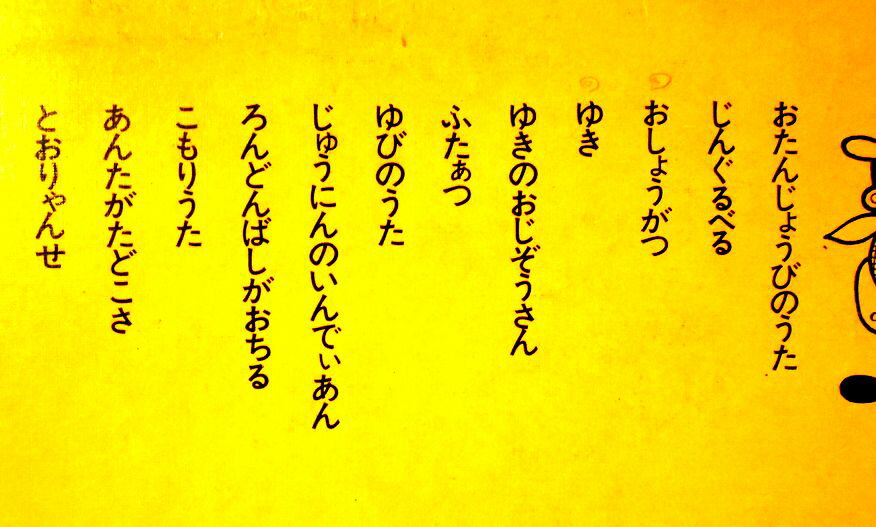 おたんじょうびのうた
じんぐるべる
おしょうがつ
ゆき
ゆきのおじぞうさん
ふたぁつ
ゆびのうた
じゅうにんのいんでぃあん
ろんどんばしがおちる
こもりうた
あんたがたどこさ
とおりゃんせ